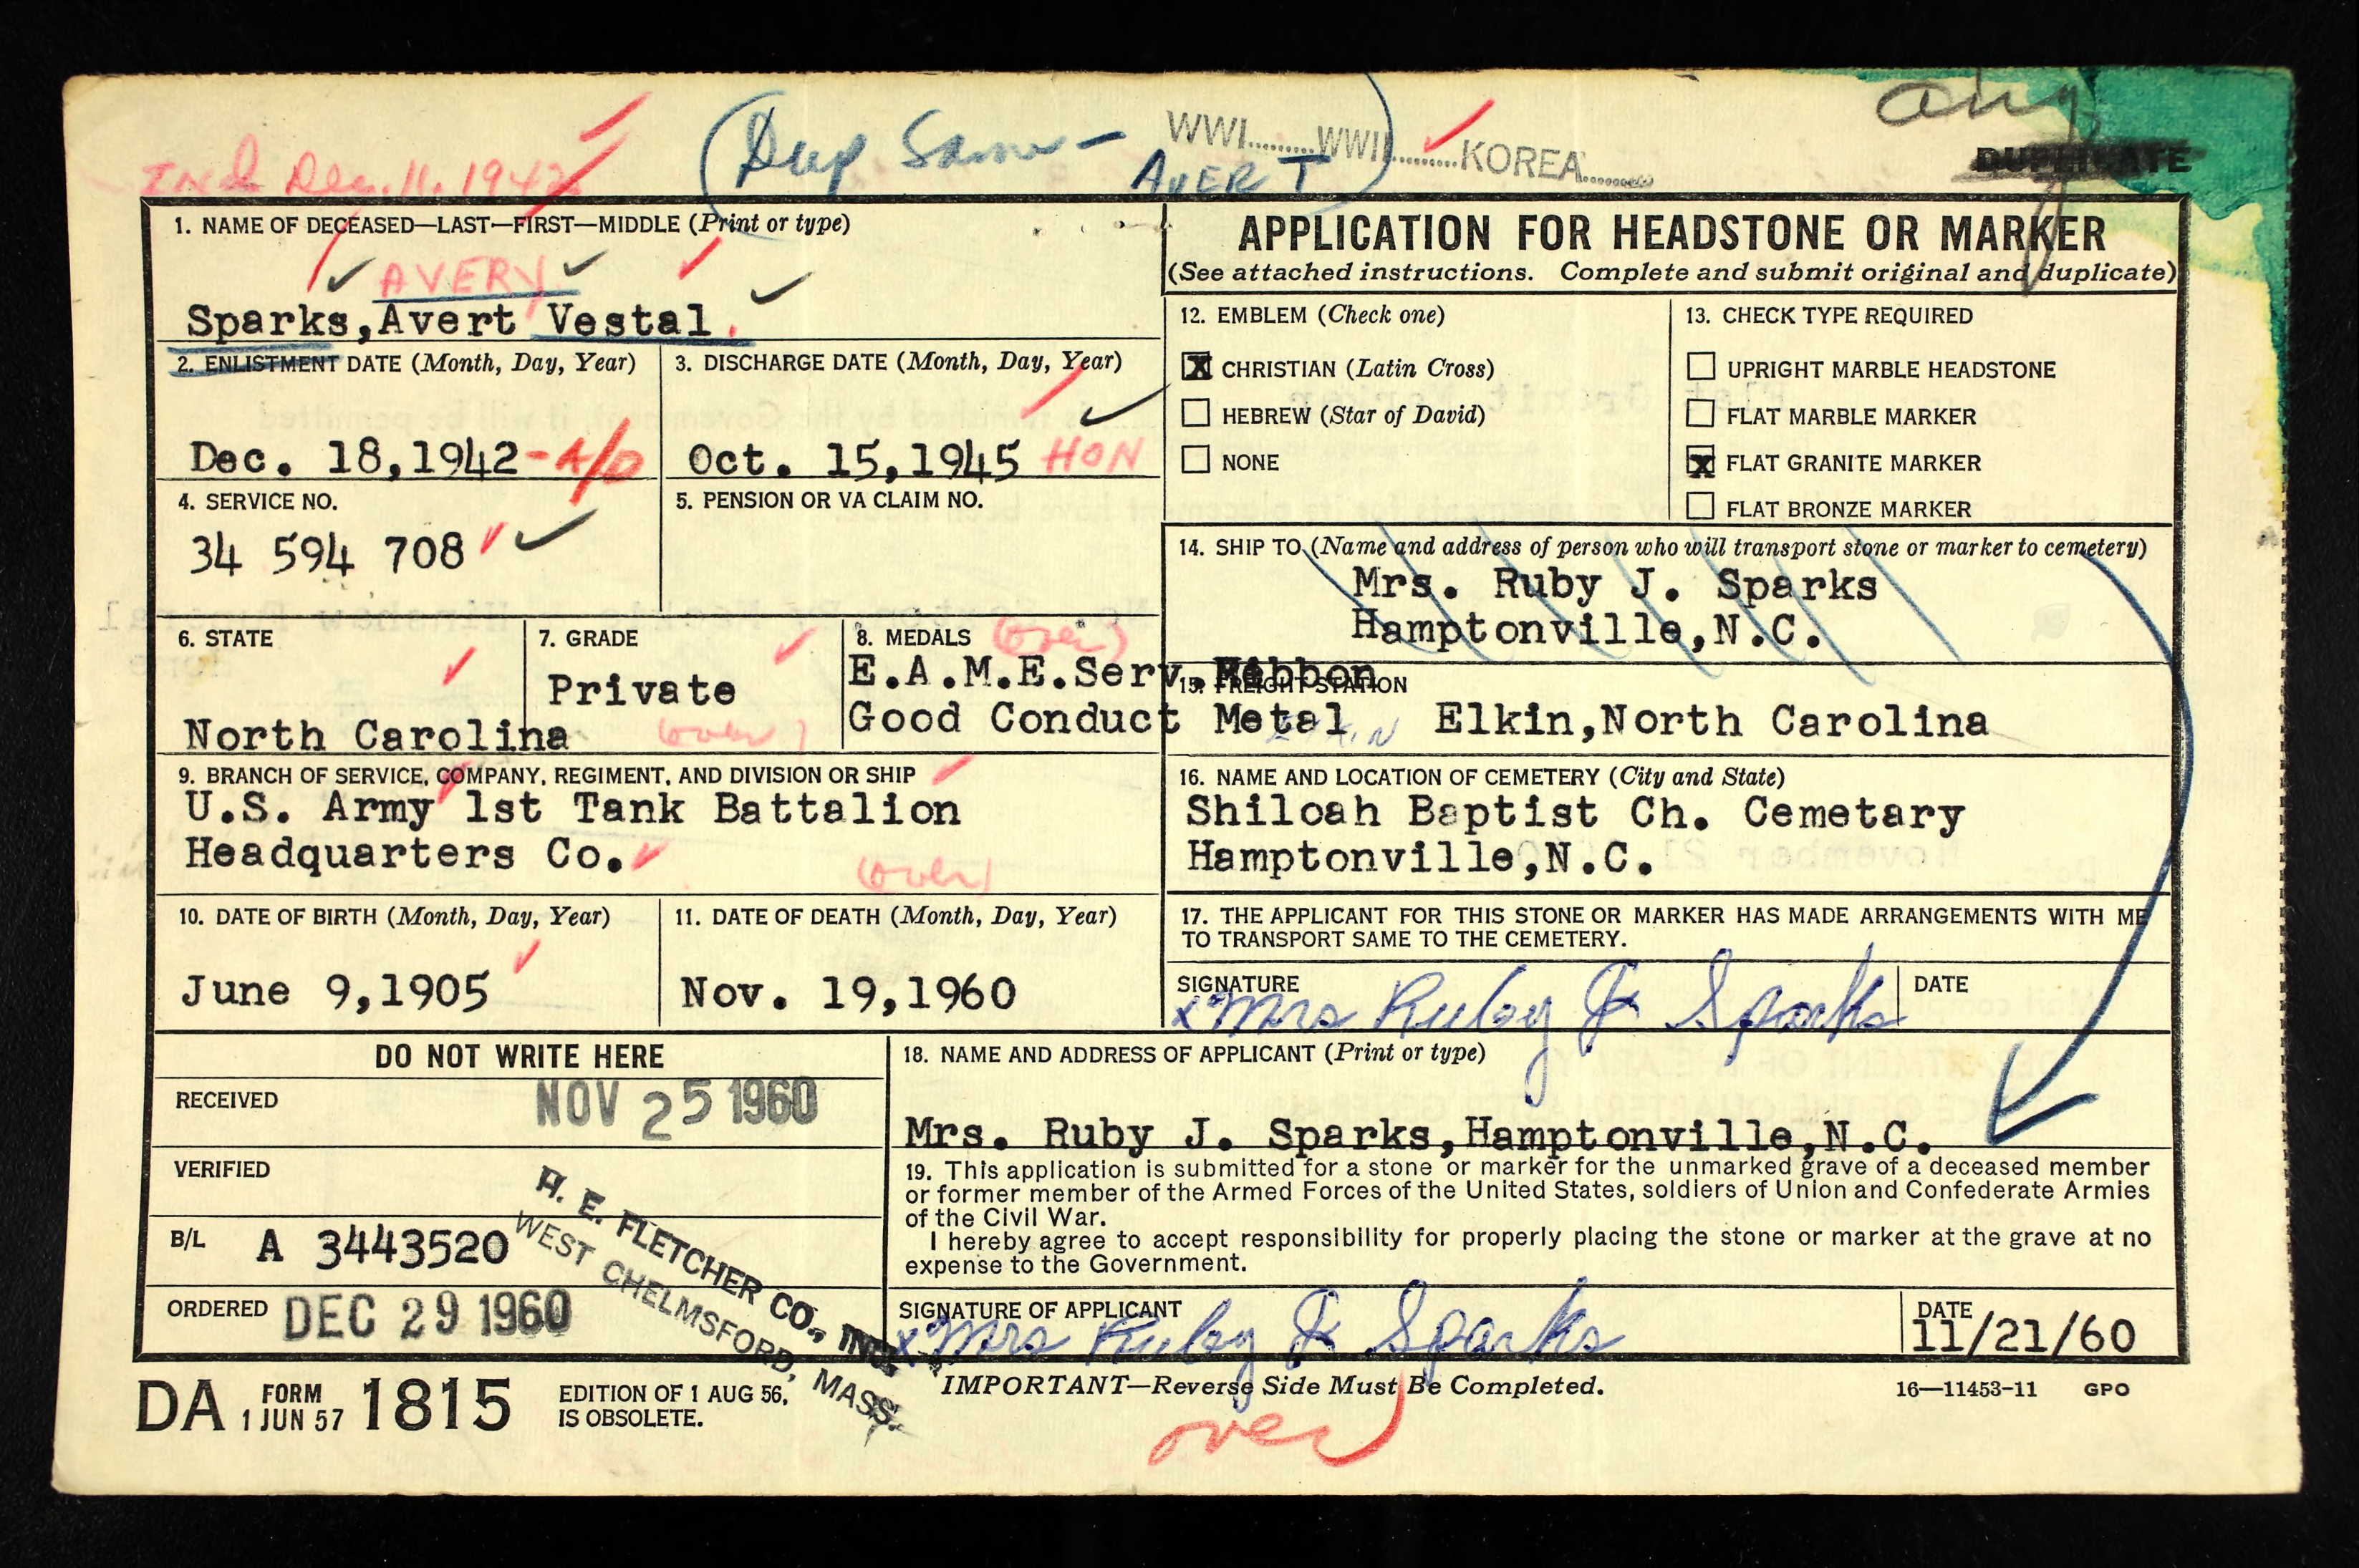 Ind Dec. 11. 1942
(Dup Same - AVERT)
WWI.........WWII..........KOREA.........
DUPLICATE
1. NAME OF DECEASED—LAST—FIRST—MIDDLE (Print or type)
AVERY
Sparks,Avert Vestal.
2. ENLISTMENT DATE (Month, Day, Year)
Dec. 18,1942-A/D
3. DISCHARGE DATE (Month, Day, Year)
Oct. 15,1945 HON
4. SERVICE NO.
34 594 708
5. PENSION OR VA CLAIM NO.
6. STATE
North Carolina
7. GRADE
Private
(over)
8. MEDALS (over)
E.A.M.E.Serv.Ribbon
Good Conduct Metal
9. BRANCH OF SERVICE, COMPANY, REGIMENT, AND DIVISION OR SHIP
U.S. Army 1st Tank Battalion
Headquarters Co.
(over)
10. DATE OF BIRTH (Month, Day, Year)
June 9,1905
11. DATE OF DEATH (Month, Day, Year)
Nov. 19,1960
APPLICATION FOR HEADSTONE OR MARKER
(See attached instructions. Complete and submit original and duplicate)
12. EMBLEM (Check one)
X CHRISTIAN (Latin Cross)
HEBREW (Star of David)
NONE
13. CHECK TYPE REQUIRED
UPRIGHT MARBLE HEADSTONE
FLAT MARBLE MARKER
X FLAT GRANITE MARKER
FLAT BRONZE MARKER
14. SHIP TO (Name and address of person who will transport stone or marker to cemetery)
Mrs. Ruby J. Sparks
Hamptonville,N.C.
15. FREIGHT STATION
Elkin,North Carolina
16. NAME AND LOCATION OF CEMETERY (City and State)
Shiloah Baptist Ch. Cemetary
Hamptonville,N.C.
17. THE APPLICANT FOR THIS STONE OR MARKER HAS MADE ARRANGEMENTS WITH ME
TO TRANSPORT SAME TO THE CEMETERY.
SIGNATURE
x Mrs Ruby J Sparks
DATE
DO NOT WRITE HERE
RECEIVED NOV 25 1960
VERIFIED
B/L A 3443520
ORDERED DEC 29 1960
H. E. FLETCHER CO., INC.
WEST CHELMSFORD, MASS.
18. NAME AND ADDRESS OF APPLICANT (Print or type)
Mrs. Ruby J. Sparks,Hamptonville,N.C.
19. This application is submitted for a stone or marker for the unmarked grave of a deceased member
or former member of the Armed Forces of the United States, soldiers of Union and Confederate Armies
of the Civil War.
I hereby agree to accept responsibility for properly placing the stone or marker at the grave at no
expense to the Government.
SIGNATURE OF APPLICANT
x Mrs Ruby J Sparks
DATE
11/21/60
DA FORM 1 JUN 57 1815
EDITION OF 1 AUG 56,
IS OBSOLETE.
IMPORTANT—Reverse Side Must Be Completed.
16—11453-11 GPO
over